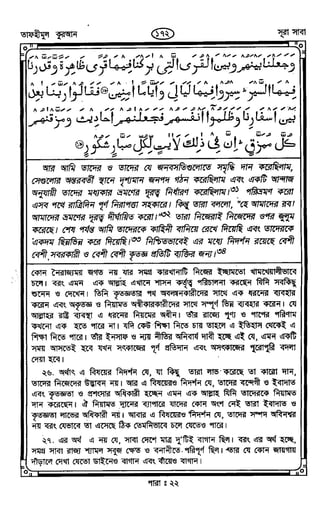 তাফহীমুল কুরআন
১৭২
সূরা সাবা
وَجَعَلْنَا بَيْنَهُمْ وَبَيْنَ الْقُرَى الَّتِي بٰرَكْنَا فِيْهَا قُرًى ظَاهِرَةً وَّقَدَّرْنَا
فِيْهَا السَّيْرَ سِيْرُوْا فِيْهَا لَيَالِيَ وَاَيَّامًا اٰمِنِيْنَ ﴿١٨﴾ فَقَالُوْا رَبَّنَا بٰعِدْ
بَيْنَ اَسْفَارِنَا وَظَلَمُوْا اَنْفُسَهُمْ فَجَعَلْنٰهُمْ اَحَادِيْثَ وَمَزَّقْنٰهُمْ
كُلَّ مُمَزَّقٍ اِنَّ فِيْ ذٰلِكَ لَاٰيٰتٍ لِّكُلِّ صَبَّارٍ شَكُوْرٍ ﴿١٩﴾
আর আমি তাদের ও তাদের যে জনবসতিগুলোতে সমৃদ্ধি দান করেছিলাম,
সেগুলোর অন্তরবর্তী স্থানে দৃশ্যমান জনপদ গঠন করেছিলাম এবং একটি আন্দাজ
অনুযায়ী তাদের মধ্যকার ভ্রমণের দূরত্ব নির্ধারণ করেছিলাম।৩১ পরিভ্রমণ করো
এসব পথে রাত্রিদিন পূর্ণ নিরাপত্তা সহকারে। কিন্তু তারা বললো, "হে আমাদের রব!
আমাদের ভ্রমণের দূরত্ব দীর্ঘায়িত করো।"৩২ তারা নিজেরাই নিজেদের ওপর জুলুম
করেছে। শেষ পর্যন্ত আমি তাদেরকে কাহিনী বানিয়ে রেখে দিয়েছি এবং তাদেরকে
একদম ছিন্নভিন্ন করে দিয়েছি।৩৩ নিশ্চিতভাবেই এর মধ্যে নিদর্শন রয়েছে বেশী
বেশী সবরকারী ও বেশী বেশী কৃতজ্ঞ প্রতিটি ব্যক্তির জন্য।৩৪
কোন নৈরাজ্যময় জগত নয় যার সমগ্র কারখানাটি নিজের ইচ্ছামতো খামখেয়ালীভাবে
চলে। বরং এমন এক আল্লাহ এখানে শাসন কর্তৃত্ব পরিচালনা করছেন যিনি সবকিছু
শুনেন ও দেখেন। তিনি কৃতজ্ঞতার পথ অবলম্বনকারীদের সাথে এক ধরনের ব্যবহার
করেন এবং অকৃতজ্ঞ ও নিয়ামত অস্বীকারকারীদের সাথে সম্পূর্ণ ভিন্ন ব্যবহার করেন। যে
আল্লাহর রাষ্ট্র ব্যবস্থা এ ধরনের নিয়মের অধীন। তাঁর রাজ্যে পুণ্য ও পাপের পরিণাম
কখনো এক হতে পারে না। যদি কেউ শিক্ষা নিতে চায় তাহলে এ ইতিহাস থেকেই এ
শিক্ষা নিতে পারে। তাঁর ইনসাফ ও ন্যায় নীতির অনিবার্য দাবী হচ্ছে এই যে, এমন একটি
সময় আসতেই হবে যখন সৎকাজের পূর্ণ প্রতিদান এবং অসৎকাজের পুরোপুরি বদলা
দেয়া হবে।
২৬. অর্থাৎ এ বিষয়ের নিদর্শন যে, যা কিছু তারা লাভ করেছে তা কারো দান,
তাদের নিজেদের উদ্ভাবন নয়। আর এ বিষয়েরও নিদর্শন যে, তাদের বন্দেগী ও ইবাদাত
এবং কৃতজ্ঞতা ও প্রশংসার অধিকারী হচ্ছেন এমন এক আল্লাহ যিনি তাদেরকে নিয়ামত
দান করেছেন। ঐ নিয়ামত দানের ব্যাপারে যাদের কোন অংশ নেই তারা ইবাদাত ও
কৃতজ্ঞতা লাভের অধিকারী নয়। আবার এ বিষয়েরও নিদর্শন যে, তাদের সম্পদ অবিনশ্বর
নয় বরং যেভাবে তা এসেছে ঠিক তেমনিভাবে চলে যেতেও পারে।
২৭. এর অর্থ এ নয় যে, সাবা দেশে মাত্র দু'টিই বাগান ছিল। বরং এর অর্থ হচ্ছে,
সমগ্র সাবা রাজ্য শ্যামল সবুজ ক্ষেত ও বনানীতে পরিপূর্ণ ছিল। তার যে কোন জায়গায়
দাঁড়ালে দেখা যেতো ডাইনেও বাগান এবং বাঁয়েও বাগান।
পারা : ২২